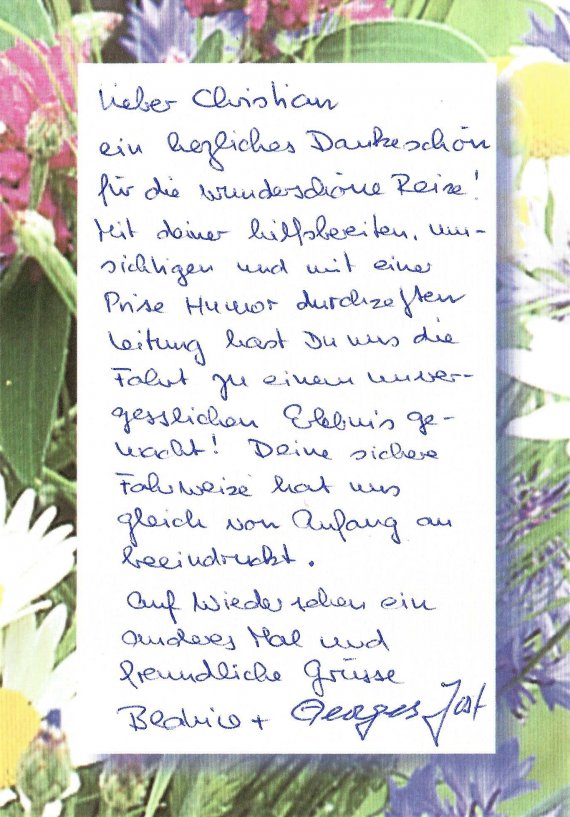 Lieber Christian
ein herzliches Dankeschön
für die wunderschöne Reise!
Mit deiner hilfsbereiten, um-
sichtigen und mit einer
Prise Humor durchzogenen
Leitung hast Du uns die
Fahrt zu einem unver-
gesslichen Erlebnis ge-
macht! Deine sichere
Fahrweise hat uns
gleich von Anfang an
beeindruckt.
Auf Wiedersehen ein
anderes Mal und
freundliche Grüsse
+ Georges Jost